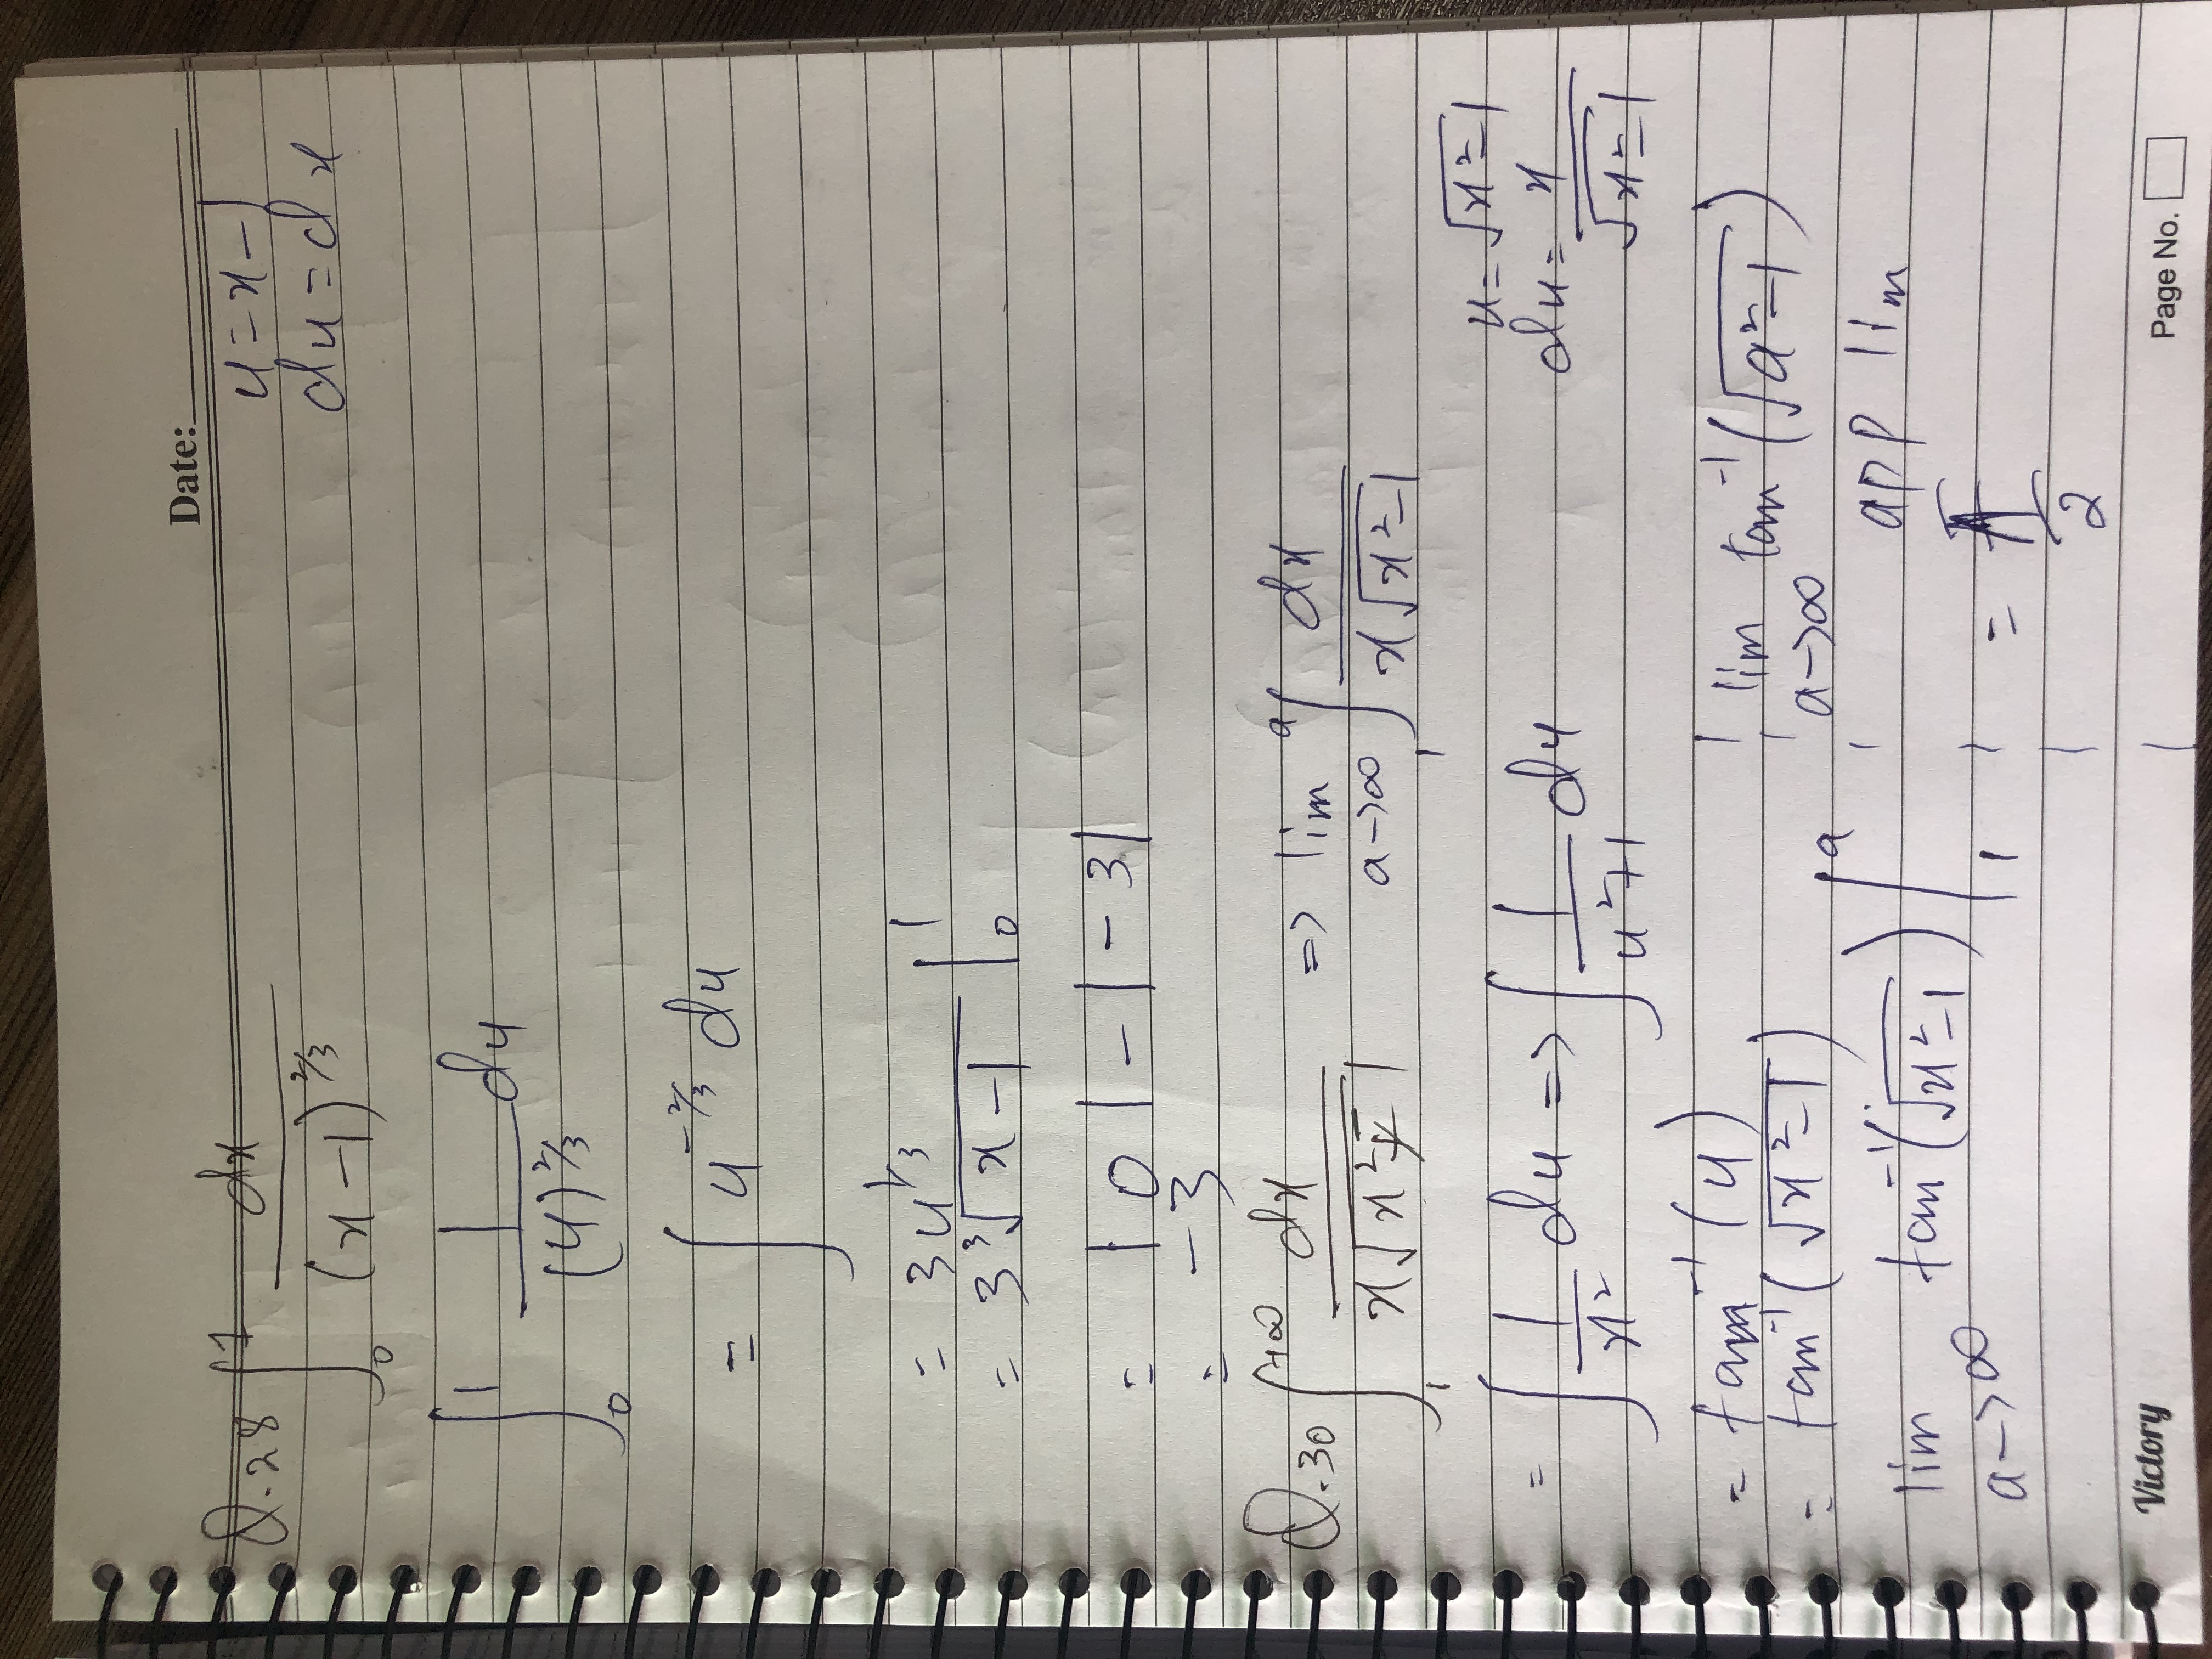 Date:
Q.28 ∫₀¹ dx / (x-1)^(2/3)
u = x-1
du = dx
∫₀¹ 1 / (u)^(2/3) du
= ∫ u^(-2/3) du
= 3u^(1/3)
= 3 ∛(x-1) |₀¹
= |0| - |-3|
= -3
Q.30 ∫₁^(+∞) dx / x√(x²-1) => lim a->∞ ∫₁^a dx / x√(x²-1)
u = √(x²-1)
= ∫ 1/x² du => ∫ 1/(u²+1) du
du = x / √(x²-1)
= tan⁻¹(u)
= tan⁻¹(√(x²-1))
lim a->∞ tan⁻¹(√(x²-1)) |₁^a
lim a->∞ tan⁻¹(√(a²-1))
app lim
= π/2
Victory
Page No.